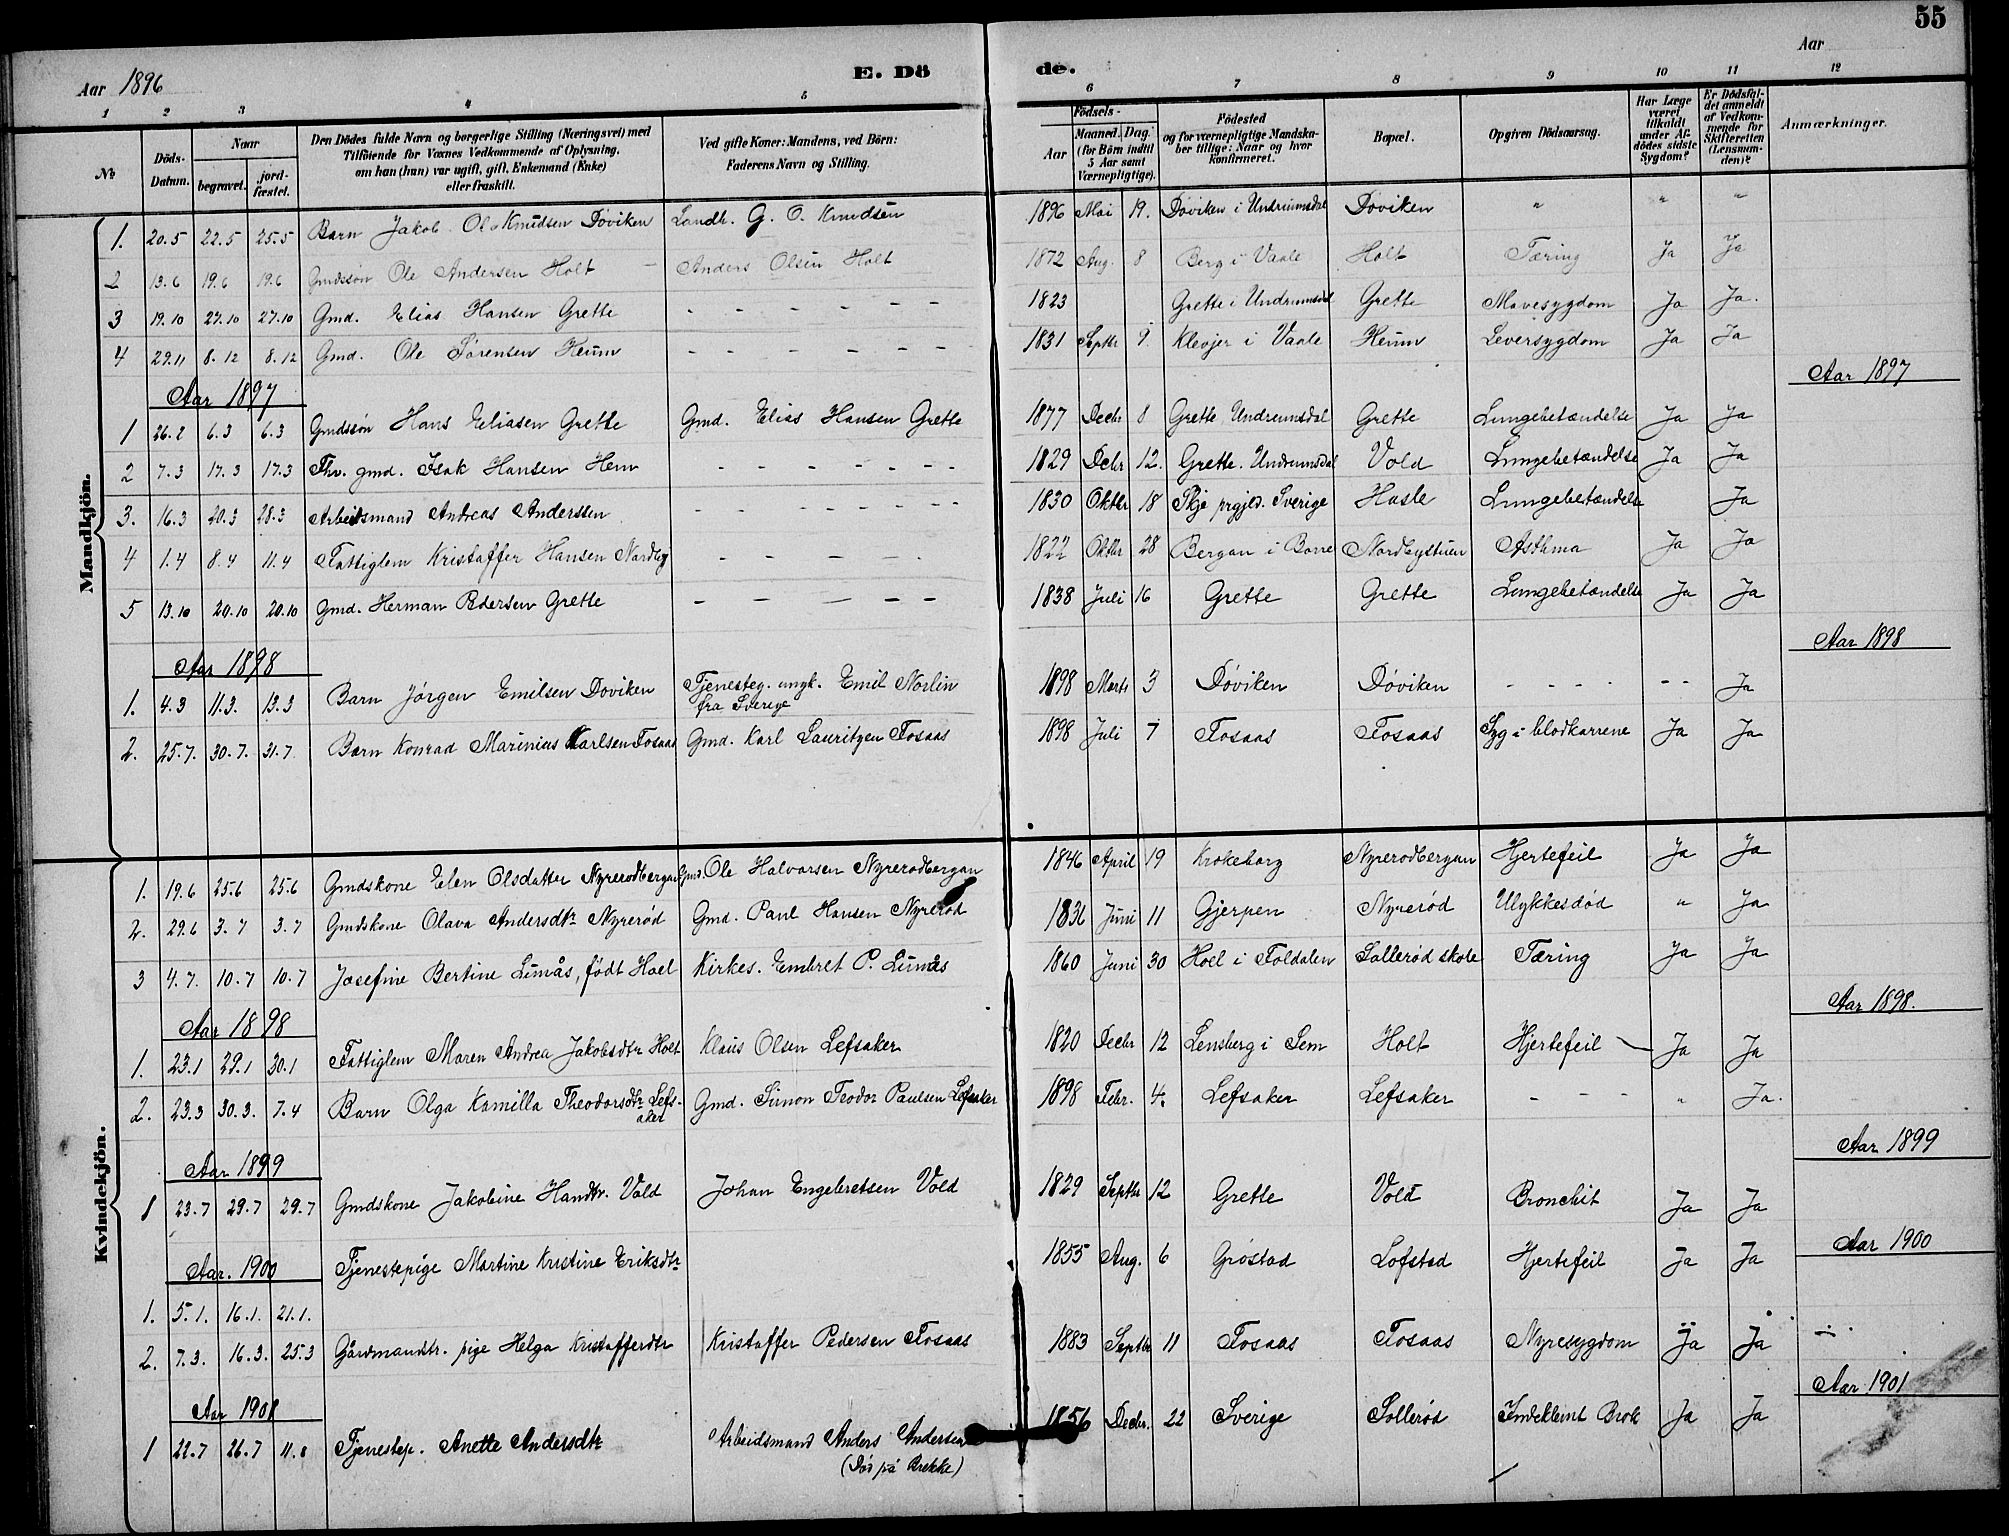 55
Aar 1896
E. Dö de.
Aar
1 2 3 4 5 6 7 8 9 10 11 12
№
Döds-Datum.
Naar
begravet.
jord-fæstet.
Den Dödes fulde Navn og borgerlige Stilling (Næringsvei) med
Tilföiende for Voxnes Vedkommende af Oplysning,
om han (hun) var ugift, gift, Enkemand (Enke)
eller fraskilt.
Ved gifte Koner: Mandens, ved Börn:
Faderens Navn og Stilling.
Födsels-
Aar
Maaned. Dag.
(for Börn indtil
5 Aar samt
Værnepligtige).
Födested
og for værnepligtige Mandska-
ber tillige: Naar og hvor
konfirmeret.
Bopæl.
Opgiven Dödsaarsag.
Har Læge
været
tilkaldt
under Af-
dödes sidste
Sygdom?
Er Dödsfal-
det anmeldt
af Vedkom-
mende for
Skifteretten
(Lensman-
den)?
Anmærkninger.
Mandkjön.
1. 20.5 22.5 25.5 Barn Jakob Ol. Knudsen Döviken Landh. G. O. Knudsen 1896 Mai 19. Döviken i Undrumsdal Döviken " " "
2 13.6 19.6 19.6 Gmdssön Ole Andersen Holt Anders Olsen Holt 1872 Aug. 8 Berg i Vaale Holt Tæring Ja Ja
3 19.10 27.10 27.10 Gmd. Elias Hansen Grette - - - - - - 1823 Grette i Undrumsdal Grette Mavesygdom Ja Ja.
4 29.11 8.12 8.12 Gmd. Ole Sørensen Heum - - - - - - 1831 Septbr 9. Klevjer i Vaale Heum Leversygdom Ja Ja
Aar 1897 Aar 1897
1 26.2 6.3 6.3 Gmdssön Hans Eliasen Grette Gmd. Elias Hansen Grette 1877 Decbr 8 Grette, Undrumsdal Grette Lungebetændelse Ja Ja
2 7.3 17.3 17.3 Fhv. gmd. Isak Hansen Hem - - - - - - - 1829 Dcbr 12. Grette. Undrumsdal Vold Lungebetændelse Ja Ja
3. 16.3 20.3 28.3 Arbeidsmand Andreas Anderssen - - - - - - - 1830 Oktbr 18 Skje prgjld. Sverige Hasle Lungebetændelse Ja
4 1.4 8.4 11.4 Fattiglem Kristoffer Hansen Nordby - - - - 1822 Oktbr 28 Bergan i Borre Nordbystuen Asthma Ja Ja
5 13.10 20.10 20.10 Gmd. Herman Pedersen Grette - - - - - 1838 Juli 16 Grette Grette Lungebetændelse Ja Ja
Aar 1898 Aar 1898
1. 4.3 11.3. 13.3 Barn Jörgen Emilsen Döviken Tjenesteg. ungk. Emil Norlin
fra Sverige 1898 Marts 3 Döviken Döviken - - - - - - Ja
2. 25.7. 30.7. 31.7 Barn Konrad Marinius Karlsen Fosaas Gmd. Karl Lauritzen Fosaas 1898 Juli 7 Fosaas Fosaas Syg i blodkarrene Ja Ja
Kvindekjön.
1. 19.6 25.6 25.6 Gmdskone Elen Olsdatter Nyrerodbergan Gmd. Ole Halvorsen Nyrerodbergan 1846 April 19 Krokeborg Nyrerodbergan Hjertefeil Ja Ja
2. 29.6 3.7 3.7 Gmdskone Olava Andersdtr Nyrerød Gmd. Paul Hansen Nyrerød 1836 Juni 11 Gjerpen Nyrerød Ulykkesdød " Ja
3 4.7. 10.7 10.7 Josefine Bertine Limås, født Hoel Kirkes. Embret P. Limås 1860 Juni 30 Hoel i Foldalen Sollerød skole Tæring Ja Ja
Aar 1898 Aar 1898.
1. 23.1 29.1 30.1 Fattiglem Maren Andrea Jakobsdtr Holt Klaus Olsen Lefsaker 1820 Decbr 12 Lensberg i Sem Holt Hjertefeil Ja Ja
2. 23.3 30.3. 7.4 Barn Olga Kamilla Theodorsdtr Lefs-
aker Gmd. Simon Teodor Paulsen Lefsaker 1898 Febr. 4. Lefsaker Lefsaker - - - " Ja.
Aar 1899 Aar 1899
1 23.7 29.7 29.7 Gmdskone Jakobine Handtr. Vold Johan Engebretsen Vold 1829 Septbr 12 Grette Vold Bronchit Ja Ja
Aar. 1900 Tjenestepige Martine Kristine Eriksdtr 1855 Aug. 6 Gröstad Lofstad Hjertefeil Ja Ja Aar 1900
1. 5.1. 16.1. 21.1.
2. 7.3. 16.3. 25.3 Gårdmandsdtr. pige Helga Kristofferdtr Kristoffer Pedersen Fosaas 1883 Septbr 11 Fosaas Fosaas Nyresygdom Ja Ja
Aar 1901 Aar 1901
1 22.7 26.7 11.8 Tjenestep. Anette Andersdtr Arbeidsmand Anders Andersen
(Död på Brekke) 1856 Decbr. 22 Sverige Sollerød Indeklemt Brok Ja Ja